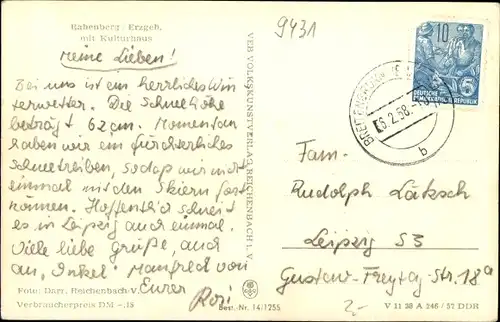 9431
Rabenberg / Erzgeb.
mit Kulturhaus
meine Lieben!
Bei uns ist ein herrliches Win
terwetter. Die Schneehöhe
beträgt 62 cm. Momentan
haben wir ein fürchterliches
Schneetreiben, sodaß wir nicht
einmal mit den Skiern fort
können. Hoffentlich schneit
es in Leipzig auch einmal.
Viele liebe Grüße, auch
an "Onkel" Manfred von
Eurer
Rosi
Foto: Darr, Reichenbach-V.
Verbraucherpreis DM -.15
Best.-Nr. 14/1255
VEB VOLKSKUNSTVERLAG REICHENBACH I. V.
10
5
DEUTSCHE
DEMOKRATISCHE REPUBLIK
6.2.58.
b
Fam.
Rudolph Lätzsch
Leipzig S3
Gustav-Freytag-Str. 18a
2,-
V 11 28 A 246 / 57 DDR